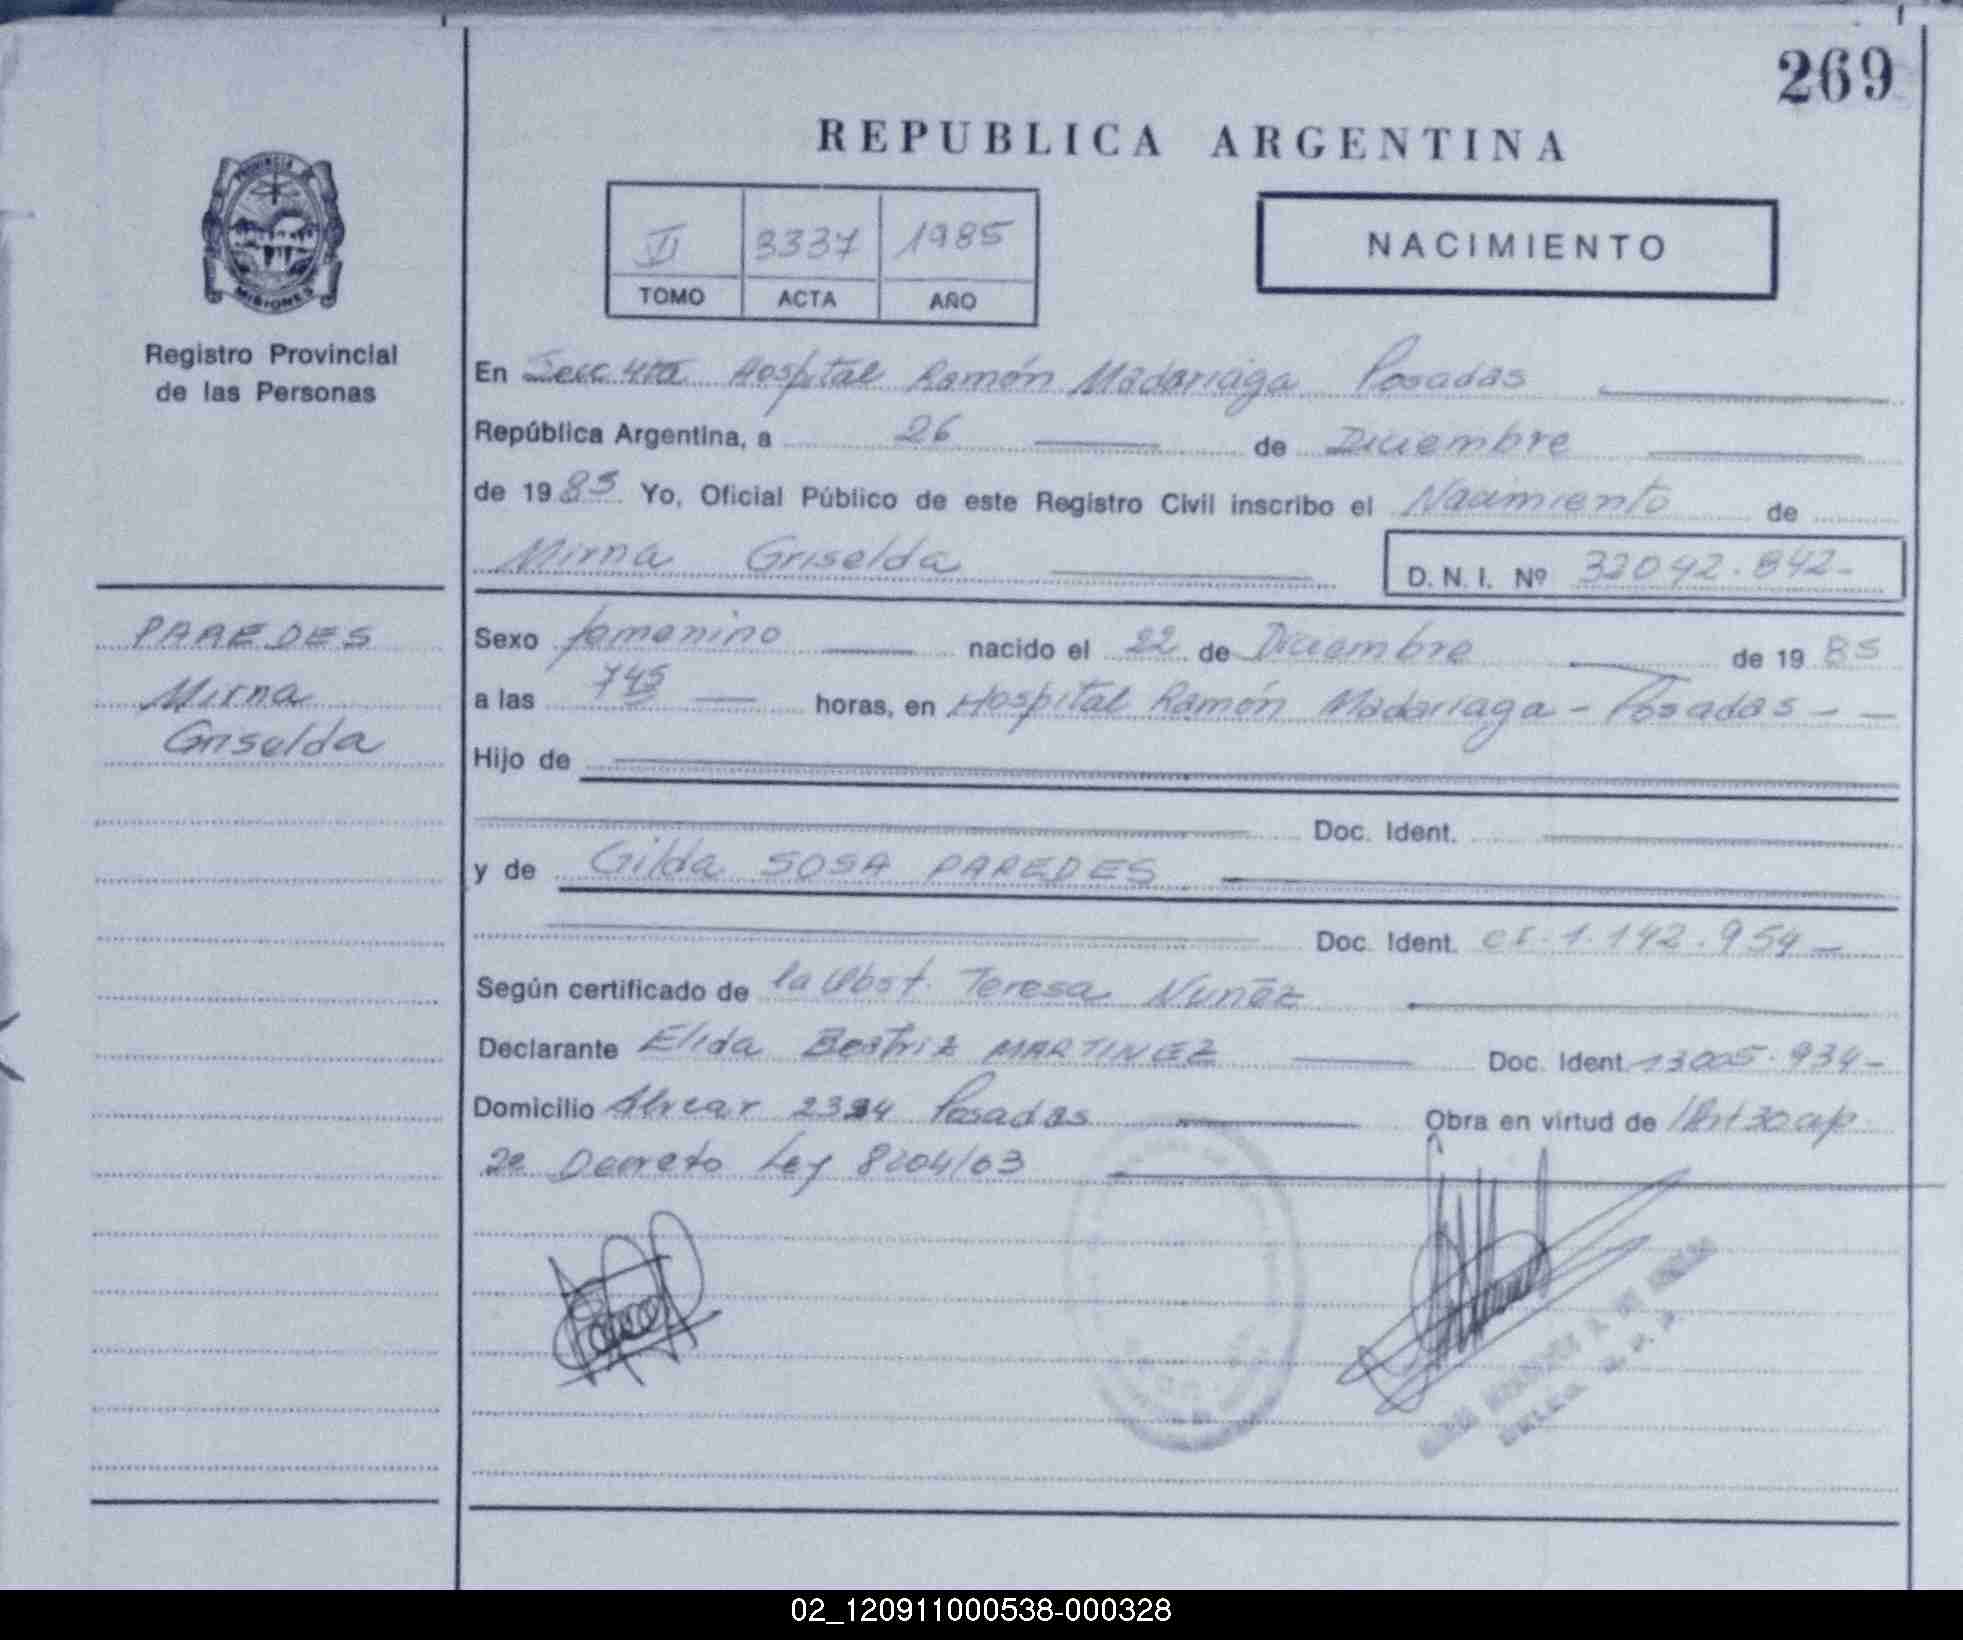 269
REPUBLICA ARGENTINA
PROVINCIA DE
MISIONES
Registro Provincial
de las Personas
3337 1985
TOMO ACTA AÑO
NACIMIENTO
En Secc 4ta Hospital Ramón Madariaga Posadas
República Argentina, a 26 de Diciembre
de 1985 Yo, Oficial Público de este Registro Civil inscribo el Nacimiento de
Mirna Griselda D. N. I. Nº 32042.842-
PAREDES
Mirna
Griselda
Sexo femenino nacido el 22 de Diciembre de 1985
a las 745 horas, en Hospital Ramón Madariaga - Posadas - -
Hijo de
Doc. Ident.
y de Gilda SOSA PAREDES
Doc. Ident. 1.142.954-
Según certificado de la Obst. Teresa Nuñez
Declarante Elida Beatriz MARTINEZ Doc. Ident. 13005.934-
Domicilio Alvear Posadas Obra en virtud de Art 30 ap
2e Decreto Ley 8204/63
02_120911000538-000328